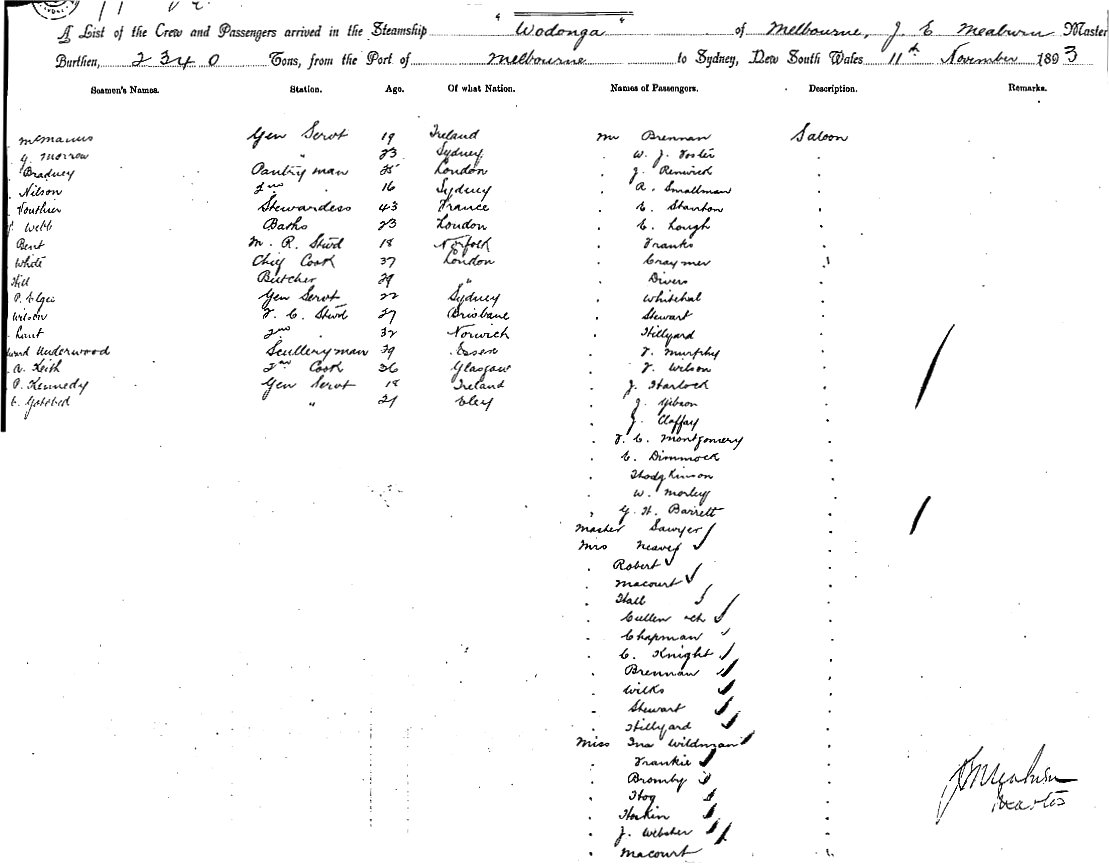 A List of the Crew and Passengers arrived in the Steamship Wodonga of Melbourne, J. E. Meaburn Master
Burthen, 2340 Tons, from the Port of Melbourne to Sydney, New South Wales 11th November 1893
Seamen's Names. Station. Age. Of what Nation. Names of Passengers. Description. Remarks.
McManus Gen Servt 19 Ireland Mr Brennan Saloon
G. Morrow " 23 Sydney " W. J. Foster "
Bradney Pantryman 25 London " J. Renwick "
Nilson 2nd " 16 Sydney " A. Smallman "
Vouthier Stewardess 43 France " E. Stanton "
Webb Baths 23 London " C. Lough "
Bent M. R. Stwd 18 Norfolk " Franks "
White Chief Cook 37 London " Craymer "
Hill Butcher 29 " " Divers "
P. Elgee Gen Servt 22 Sydney " Whitehal "
Wilson F. C. Stwd 27 Brisbane " Stewart "
2nd " 32 Norwich " Hillyard "
Underwood Sculleryman 39 Essex " F. Murphy "
A. Keith 2nd Cook 36 Glasgow " F. Wilson "
P. Kennedy Gen Servt 18 Ireland " J. Harlock "
" 21 Eley " J. Gibson "
" J. Claffay "
" F. C. Montgomery "
" C. Dimmock "
" Hodgkinson "
" W. Morley "
" G. H. Barrett "
Master Sawyer "
Mrs Neaves "
" Robert "
" Macourt "
" Hall "
" Cullen & ch "
" Chapman "
" C. Knight "
" Brennan "
" Wilks "
" Stewart "
" Hillyard "
Miss Ina Wildman "
" Frankie "
" Bromby "
" Hog "
" Hoskin "
" J. Webster "
" Macourt "
J E Meaburn
Master